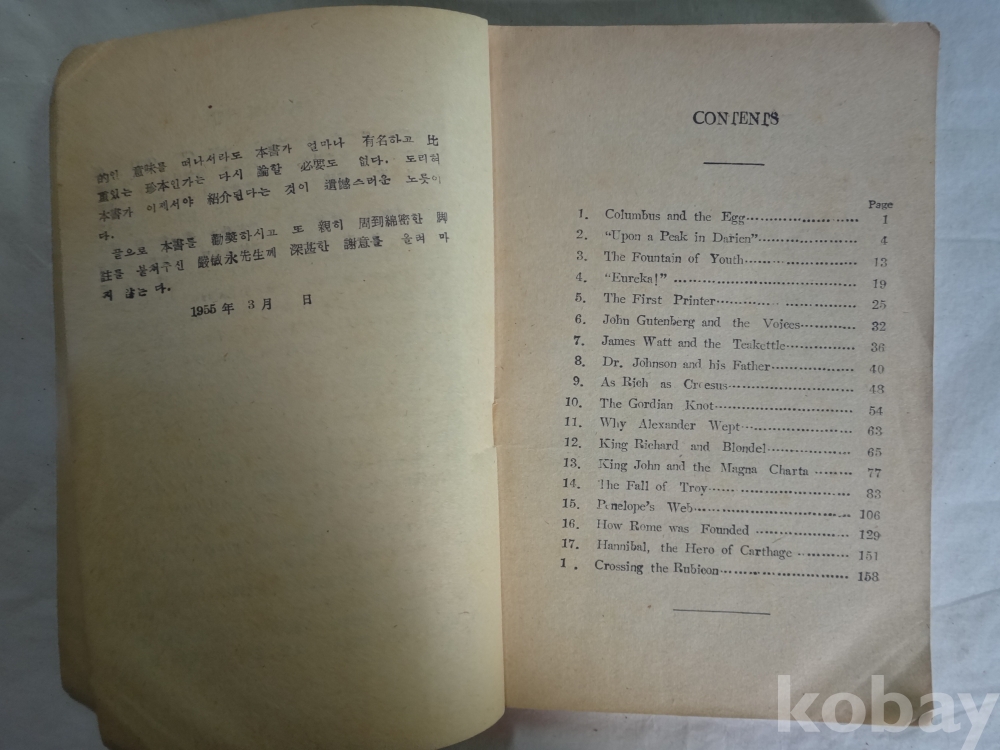 的인 意味를 떠나서라도 本書가 얼마나 有名하고 比
重있는 珍本인가는 다시 論할 必要도 없다. 도리혀
本書가 이제서야 紹介된다는 것이 遺憾스러운 노릇이
다.
끝으로 本書를 勸奬하시고 또 親히 周到綿密한 脚
註를 붙쳐주신 嚴敏永先生께 深甚한 謝意를 올려 마
지 않는다.
1955年 3月 日
CONTENTS
Page
1. Columbus and the Egg 1
2. “Upon a Peak in Darien” 4
3. The Fountain of Youth 13
4. “Eureka!” 19
5. The First Printer 25
6. John Gutenberg and the Voices 32
7. James Watt and the Teakettle 36
8. Dr. Johnson and his Father 40
9. As Rich as Croesus 48
10. The Gordian Knot 54
11. Why Alexander Wept 63
12. King Richard and Blondel 65
13. King John and the Magna Charta 77
14. The Fall of Troy 83
15. Penelope's Web 106
16. How Rome was Founded 129
17. Hannibal, the Hero of Carthage 151
1 . Crossing the Rubicon 158
kobay